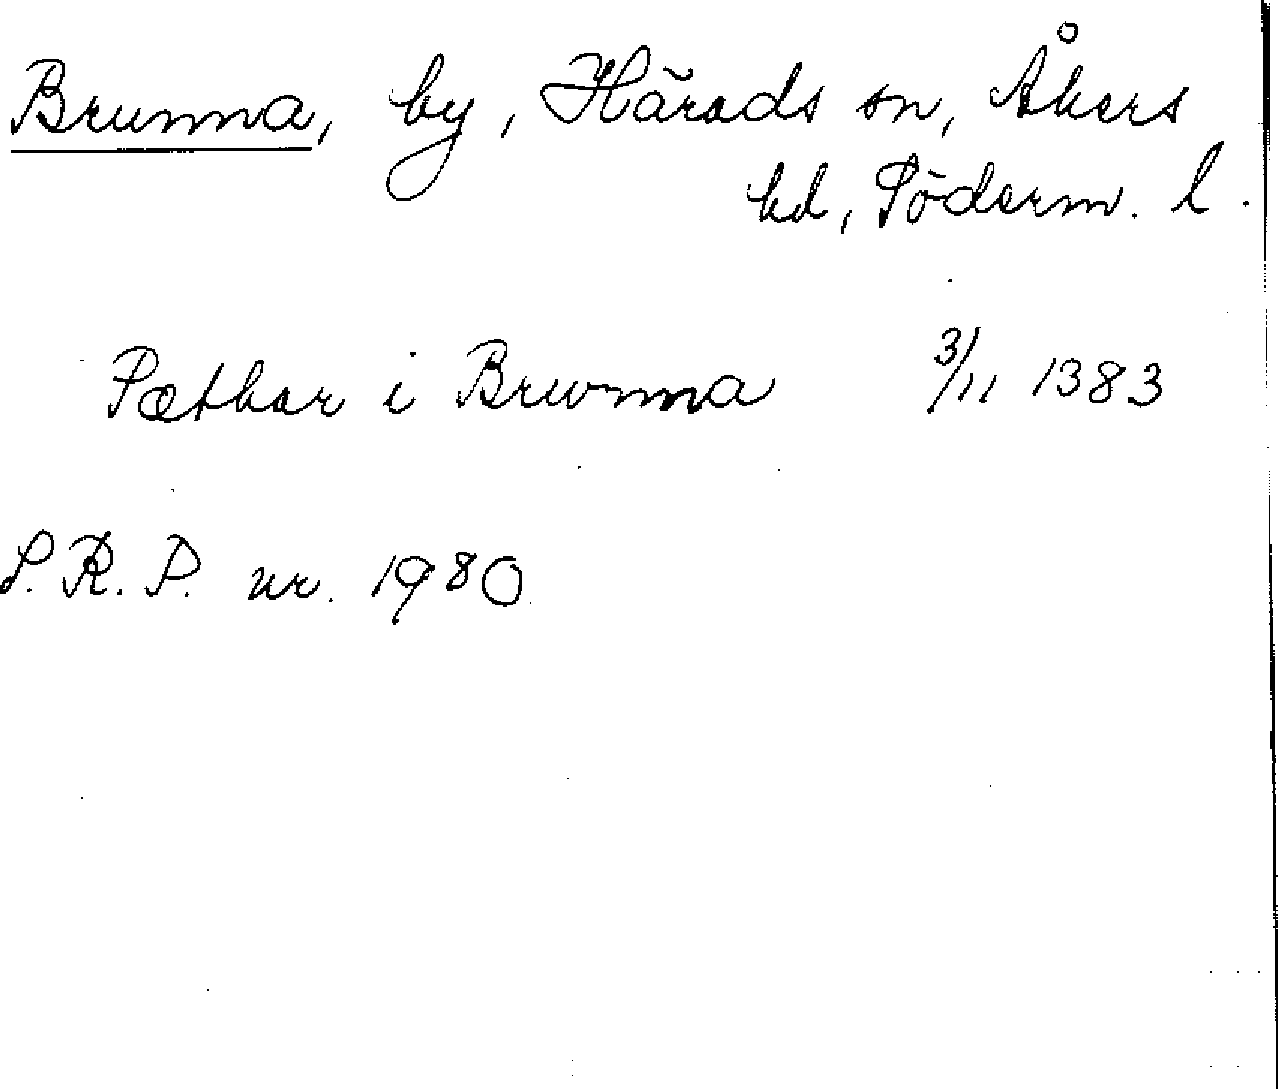 Brunna, by, Härads sn, Åkers
hd, Söderm. l.
Pæthar i Brwnna 3/11 1383
S.R.P. nr. 1980